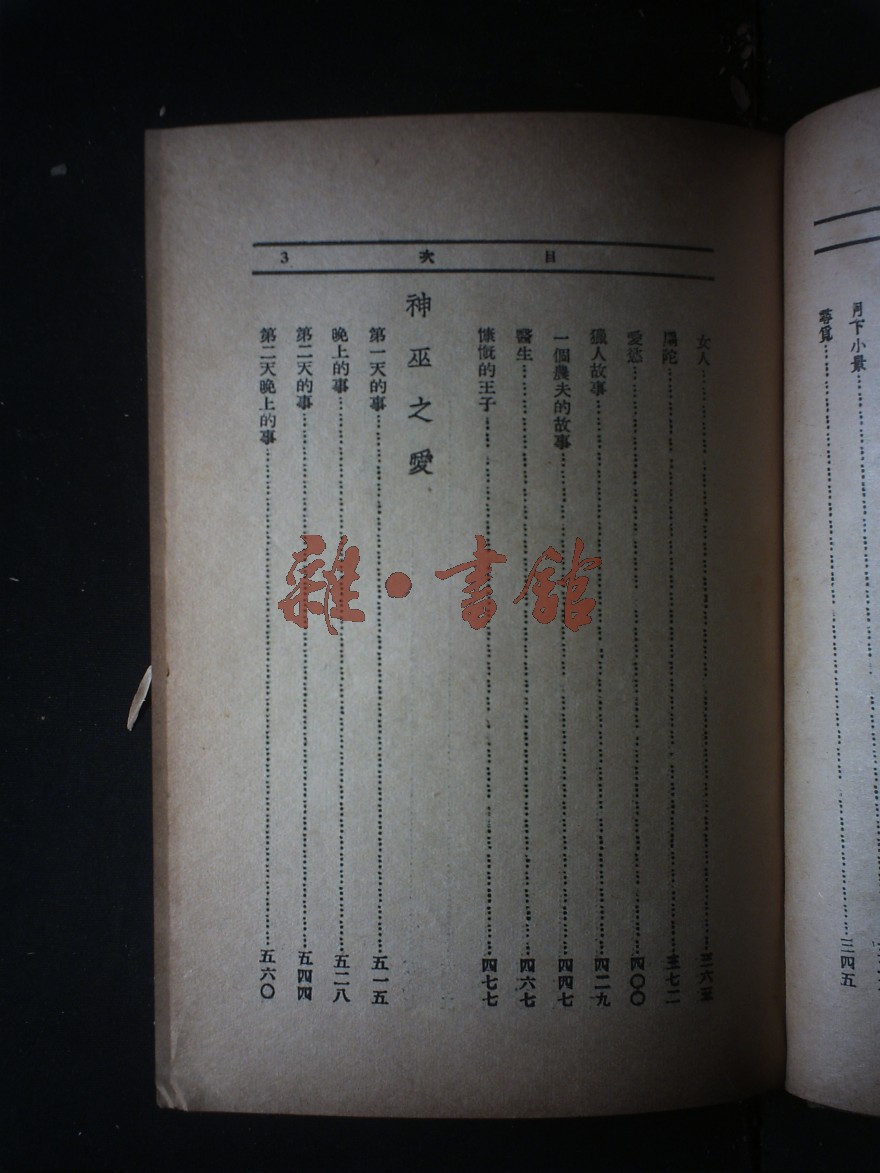 月下小景
尋覓……三四五
目次 3
女人……
扇陀……三七二
愛慾……四〇〇
獵人故事……四二九
一個農夫的故事……四四七
醫生……四六七
慷慨的王子……四七七
神巫之愛
第一天的事……五一五
晚上的事……五二八
第二天的事……五四四
第二天晚上的事……五六〇
雜·書館